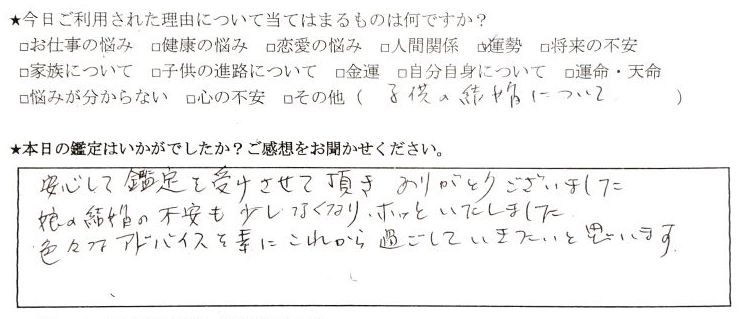 ★今日ご利用された理由について当てはまるものは何ですか？
□お仕事の悩み □健康の悩み □恋愛の悩み □人間関係 ☑運勢 □将来の不安
□家族について □子供の進路について □金運 □自分自身について □運命・天命
□悩みが分からない □心の不安 □その他（ 子供の結婚について ）
★本日の鑑定はいかがでしたか？ご感想をお聞かせください。
安心して鑑定を受けさせて頂きありがとうございました
娘の結婚の不安も少しなくなり、ホッといたしました
色々なアドバイスを素にこれから過ごしていきたいと思います。